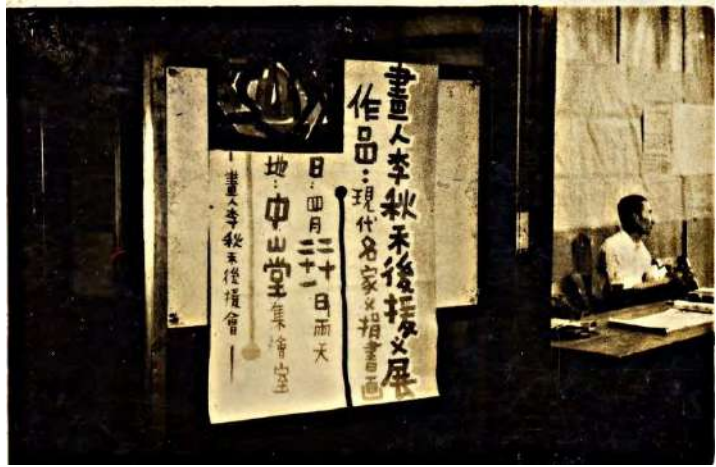 畫人李秋禾後援义展
作品：現代名家义捐書画
日：四月二十二十一日兩天
地：中山堂集會室
—畫人李秋禾後援會—